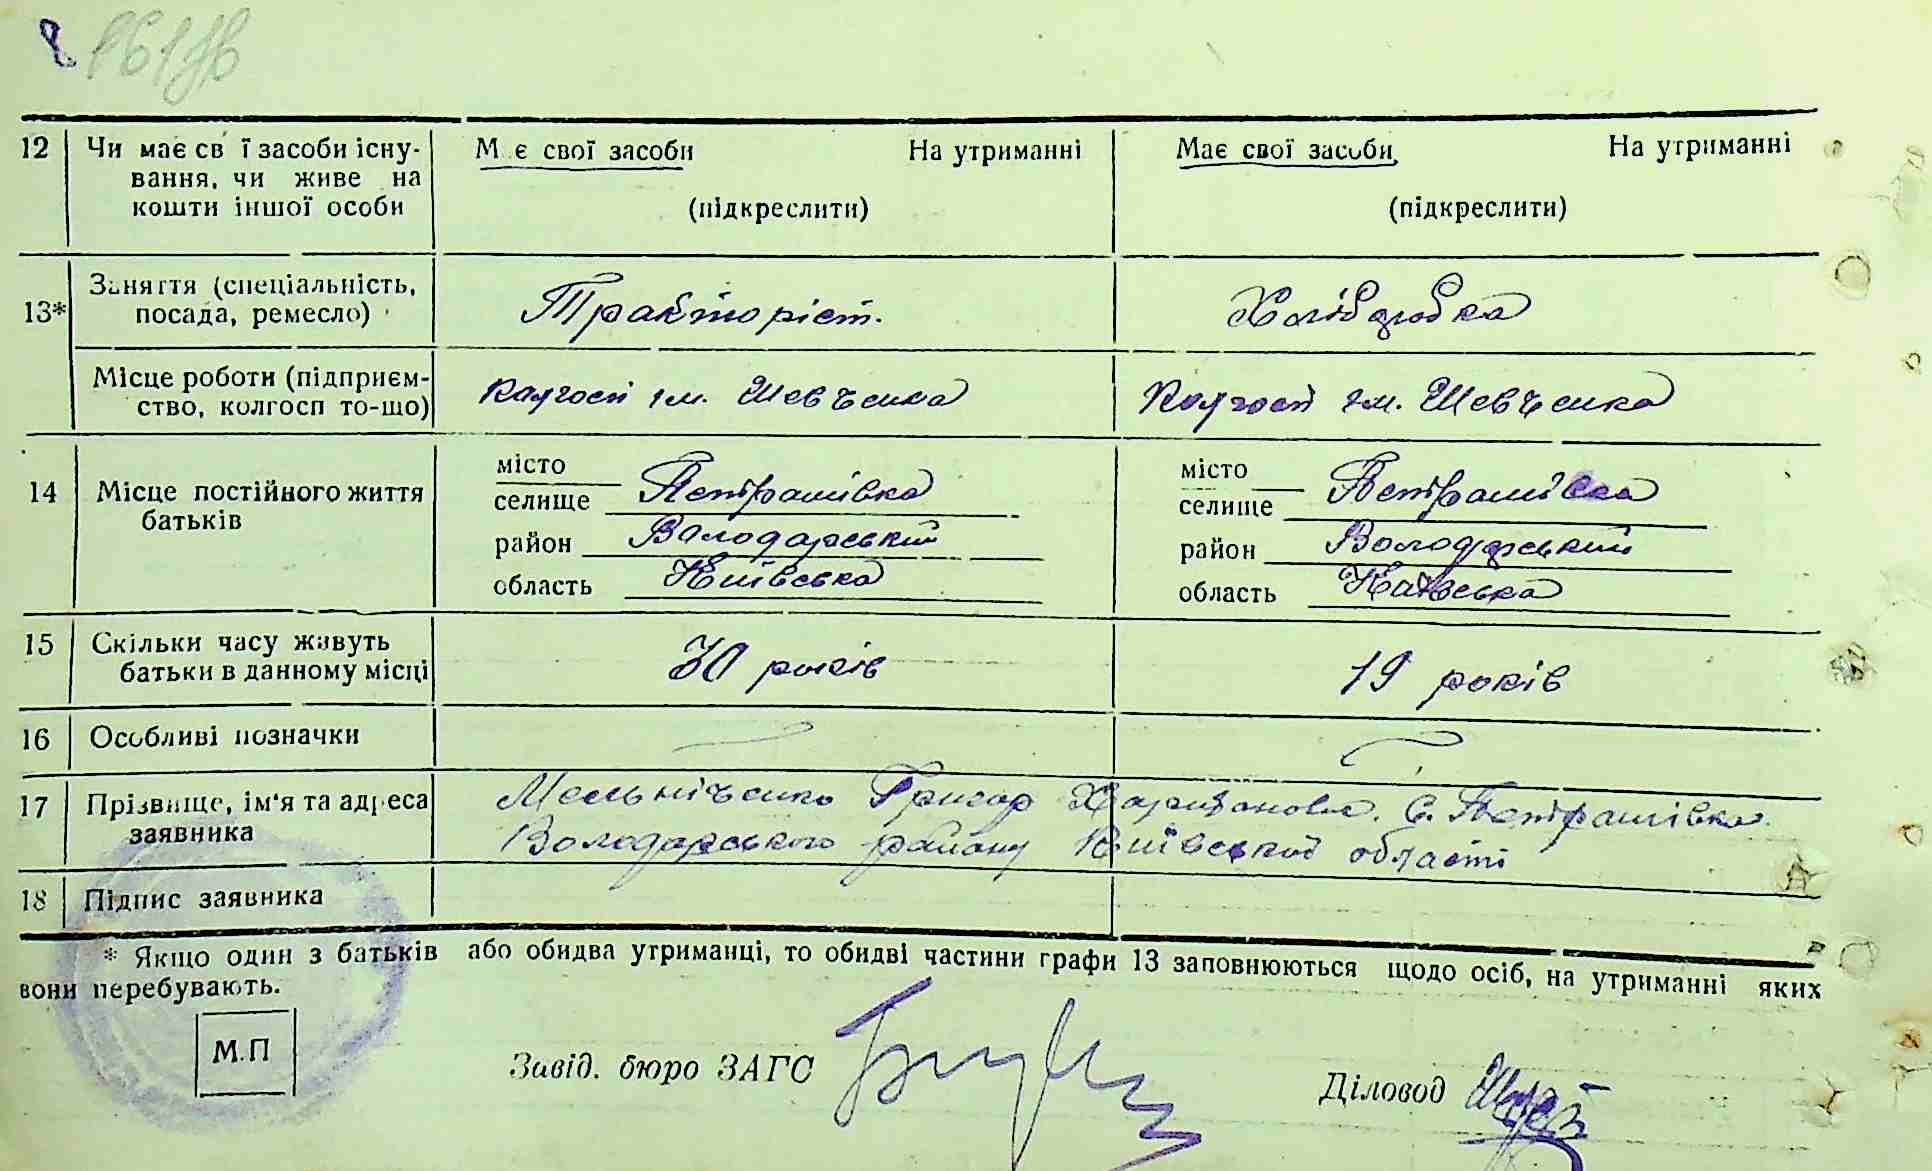 12 Чи має св ї засоби існу- М є свої засоби На утриманні Має свої засоби На утриманні
вання, чи живе на
кошти іншої особи (підкреслити) (підкреслити)
13* Заняття (спеціальність,
посада, ремесло) Трабторіст. Хлібдобка
Місце роботи (підприєм- Колгосп ім. Шевченка Колгосп ім. Шевченка
ство, колгосп то-що)
місто місто
14 Місце постійного життя селище Петрашівка селище Петрашівка
батьків район Володарський район Володарський
область Київська область Київська
15 Скільки часу живуть 30 років 19 років
батьки в данному місці
16 Особливі позначки
17 Прізвище, ім'я та адреса Мельніченко Григор с. Петрашівка
заявника Володарського району Київської області
18 Підпис заявника
* Якщо один з батьків або обидва утриманці, то обидві частини графи 13 заповнюються щодо осіб, на утриманні яких
вони перебувають.
М.П
Завід. бюро ЗАГС Діловод